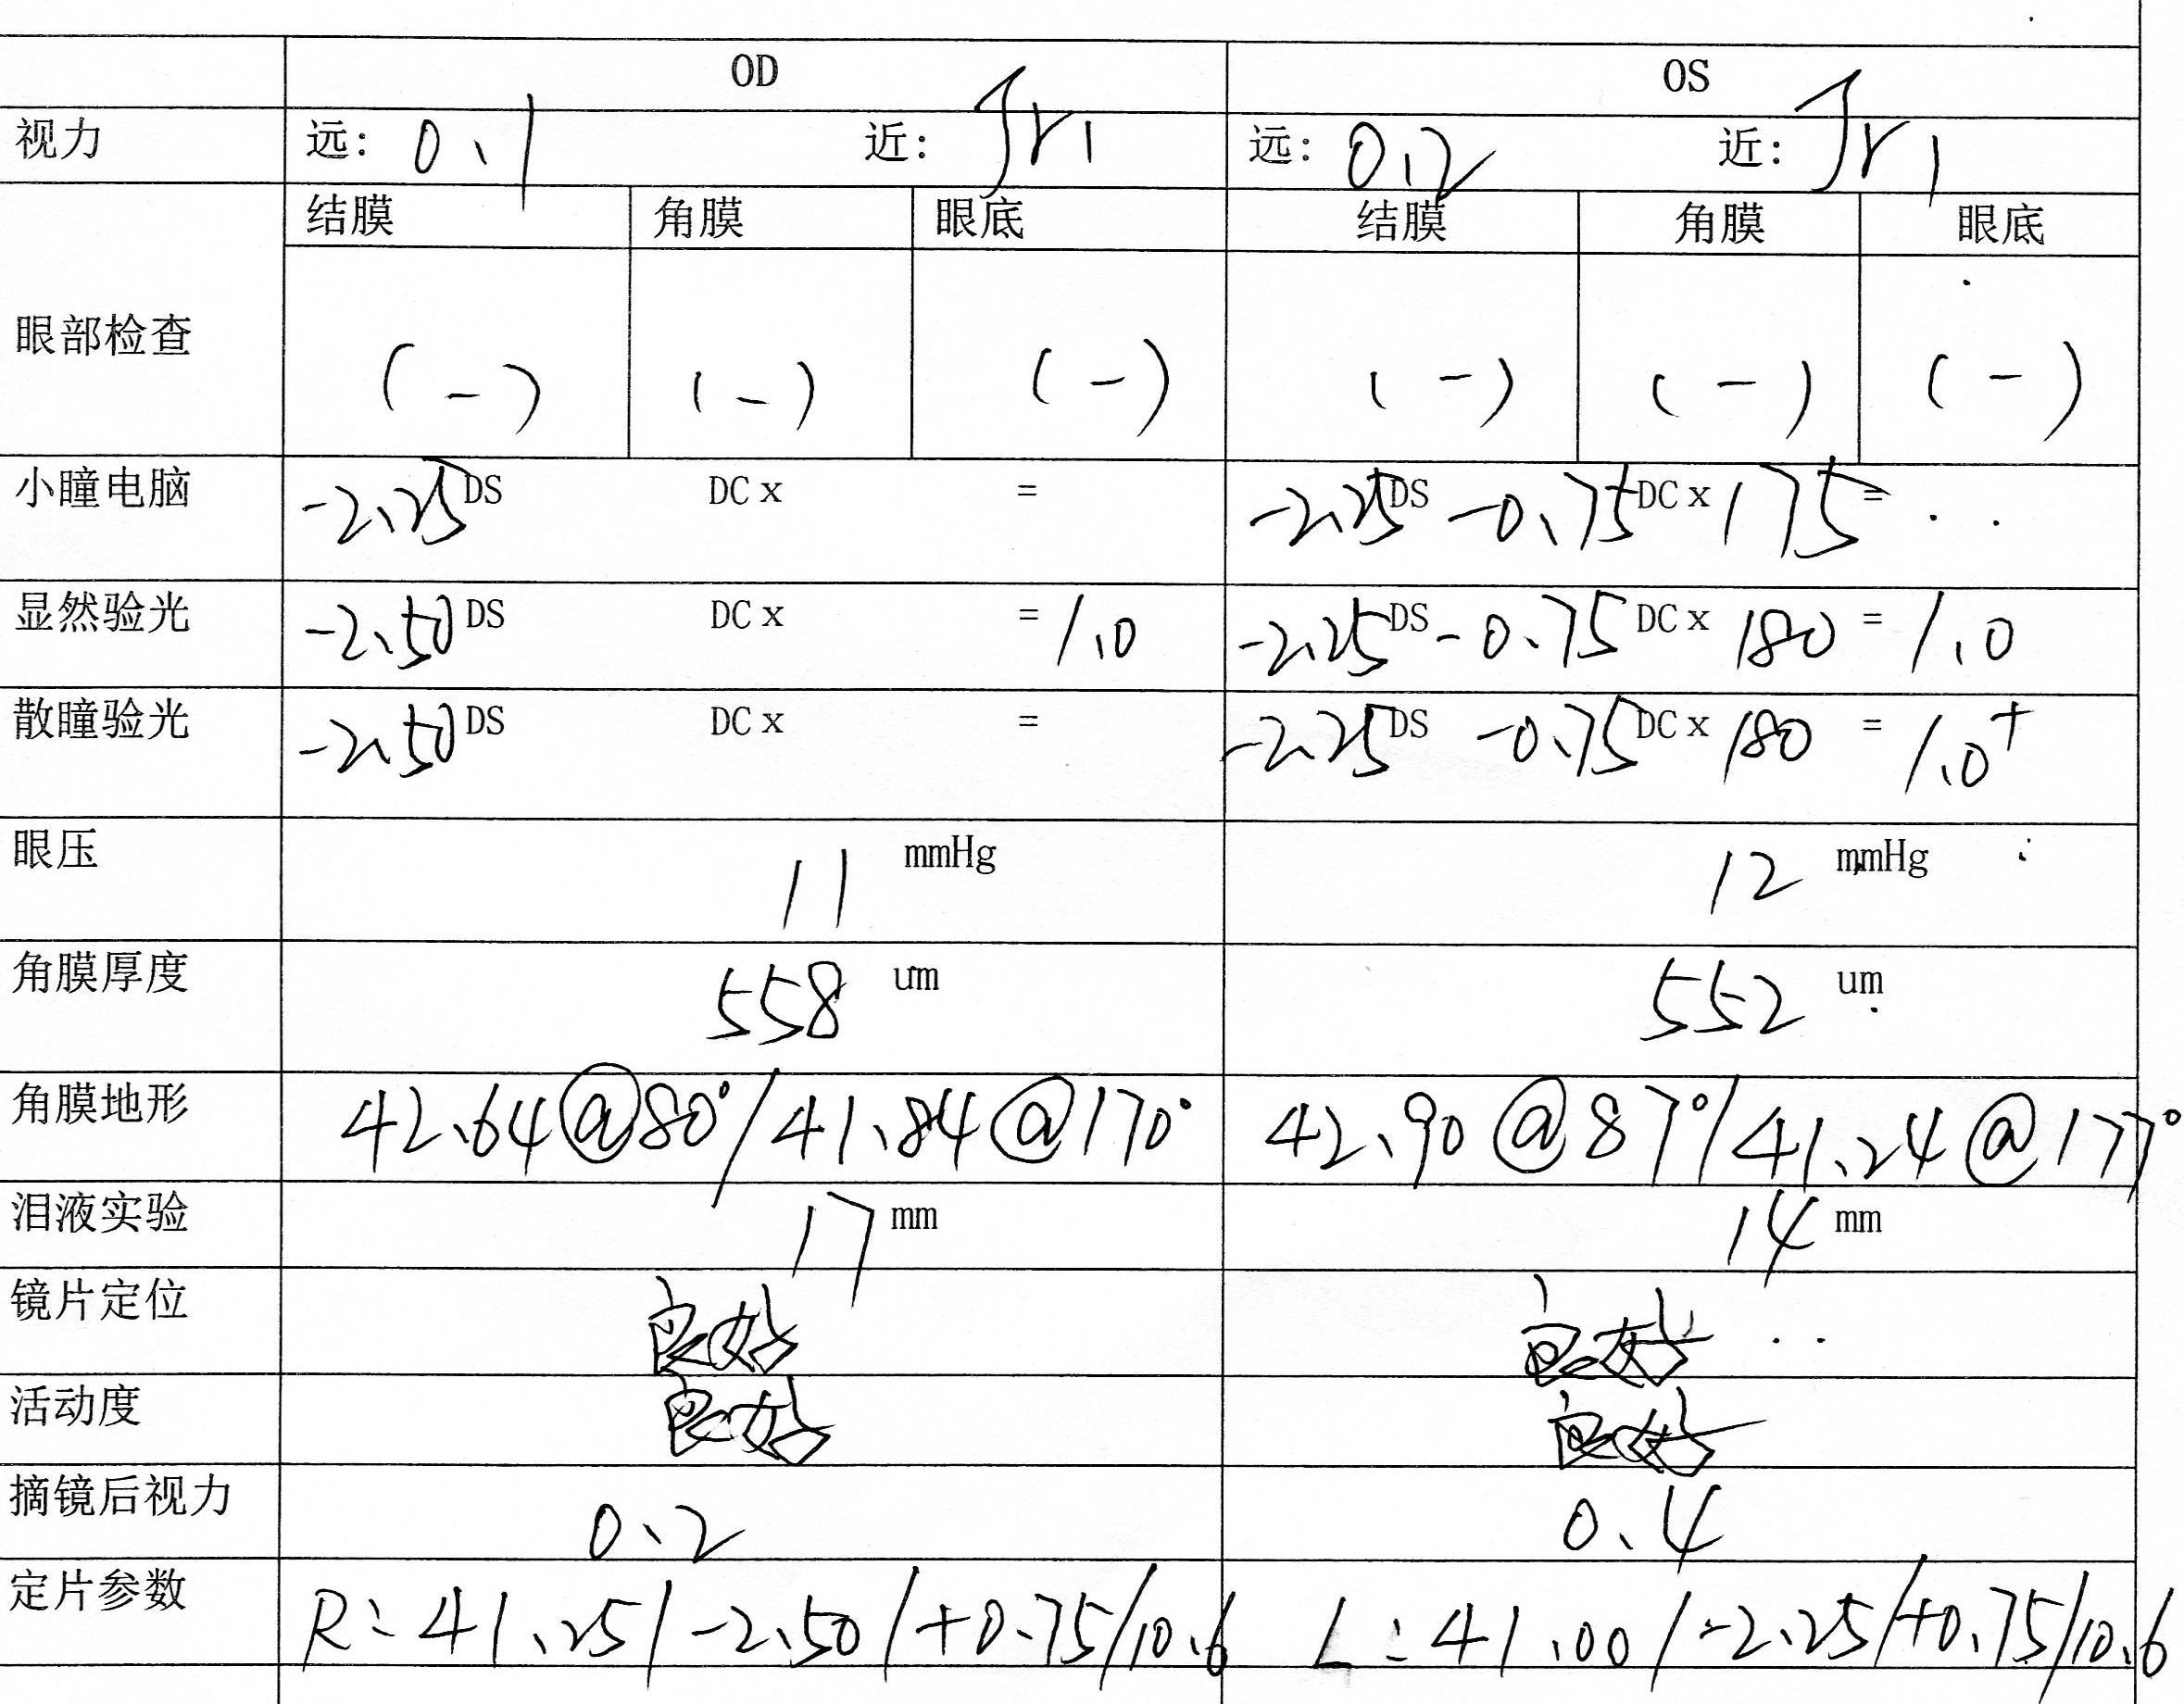 OD OS
视力 远: 0.1 近: Jr1 远: 0.2 近: Jr1
结膜 角膜 眼底 结膜 角膜 眼底
眼部检查 (-) (-) (-) (-) (-) (-)
小瞳电脑 -2.25DS DC x = -2.25DS -0.75DC x 175 =
显然验光 -2.50DS DC x = 1.0 -2.25DS -0.75DC x 180 = 1.0
散瞳验光 -2.50DS DC x = -2.25DS -0.75DC x 180 = 1.0+
眼压 11 mmHg 12 mmHg
角膜厚度 558 um 552 um
角膜地形 42.64@80°/41.84@170° 42.90@87°/41.24@177°
泪液实验 17 mm 14 mm
镜片定位 良好 良好
活动度 良好 良好
摘镜后视力 0.2 0.4
定片参数 R: 41.25/-2.50/+0.75/10.6 L: 41.00/-2.25/+0.75/10.6